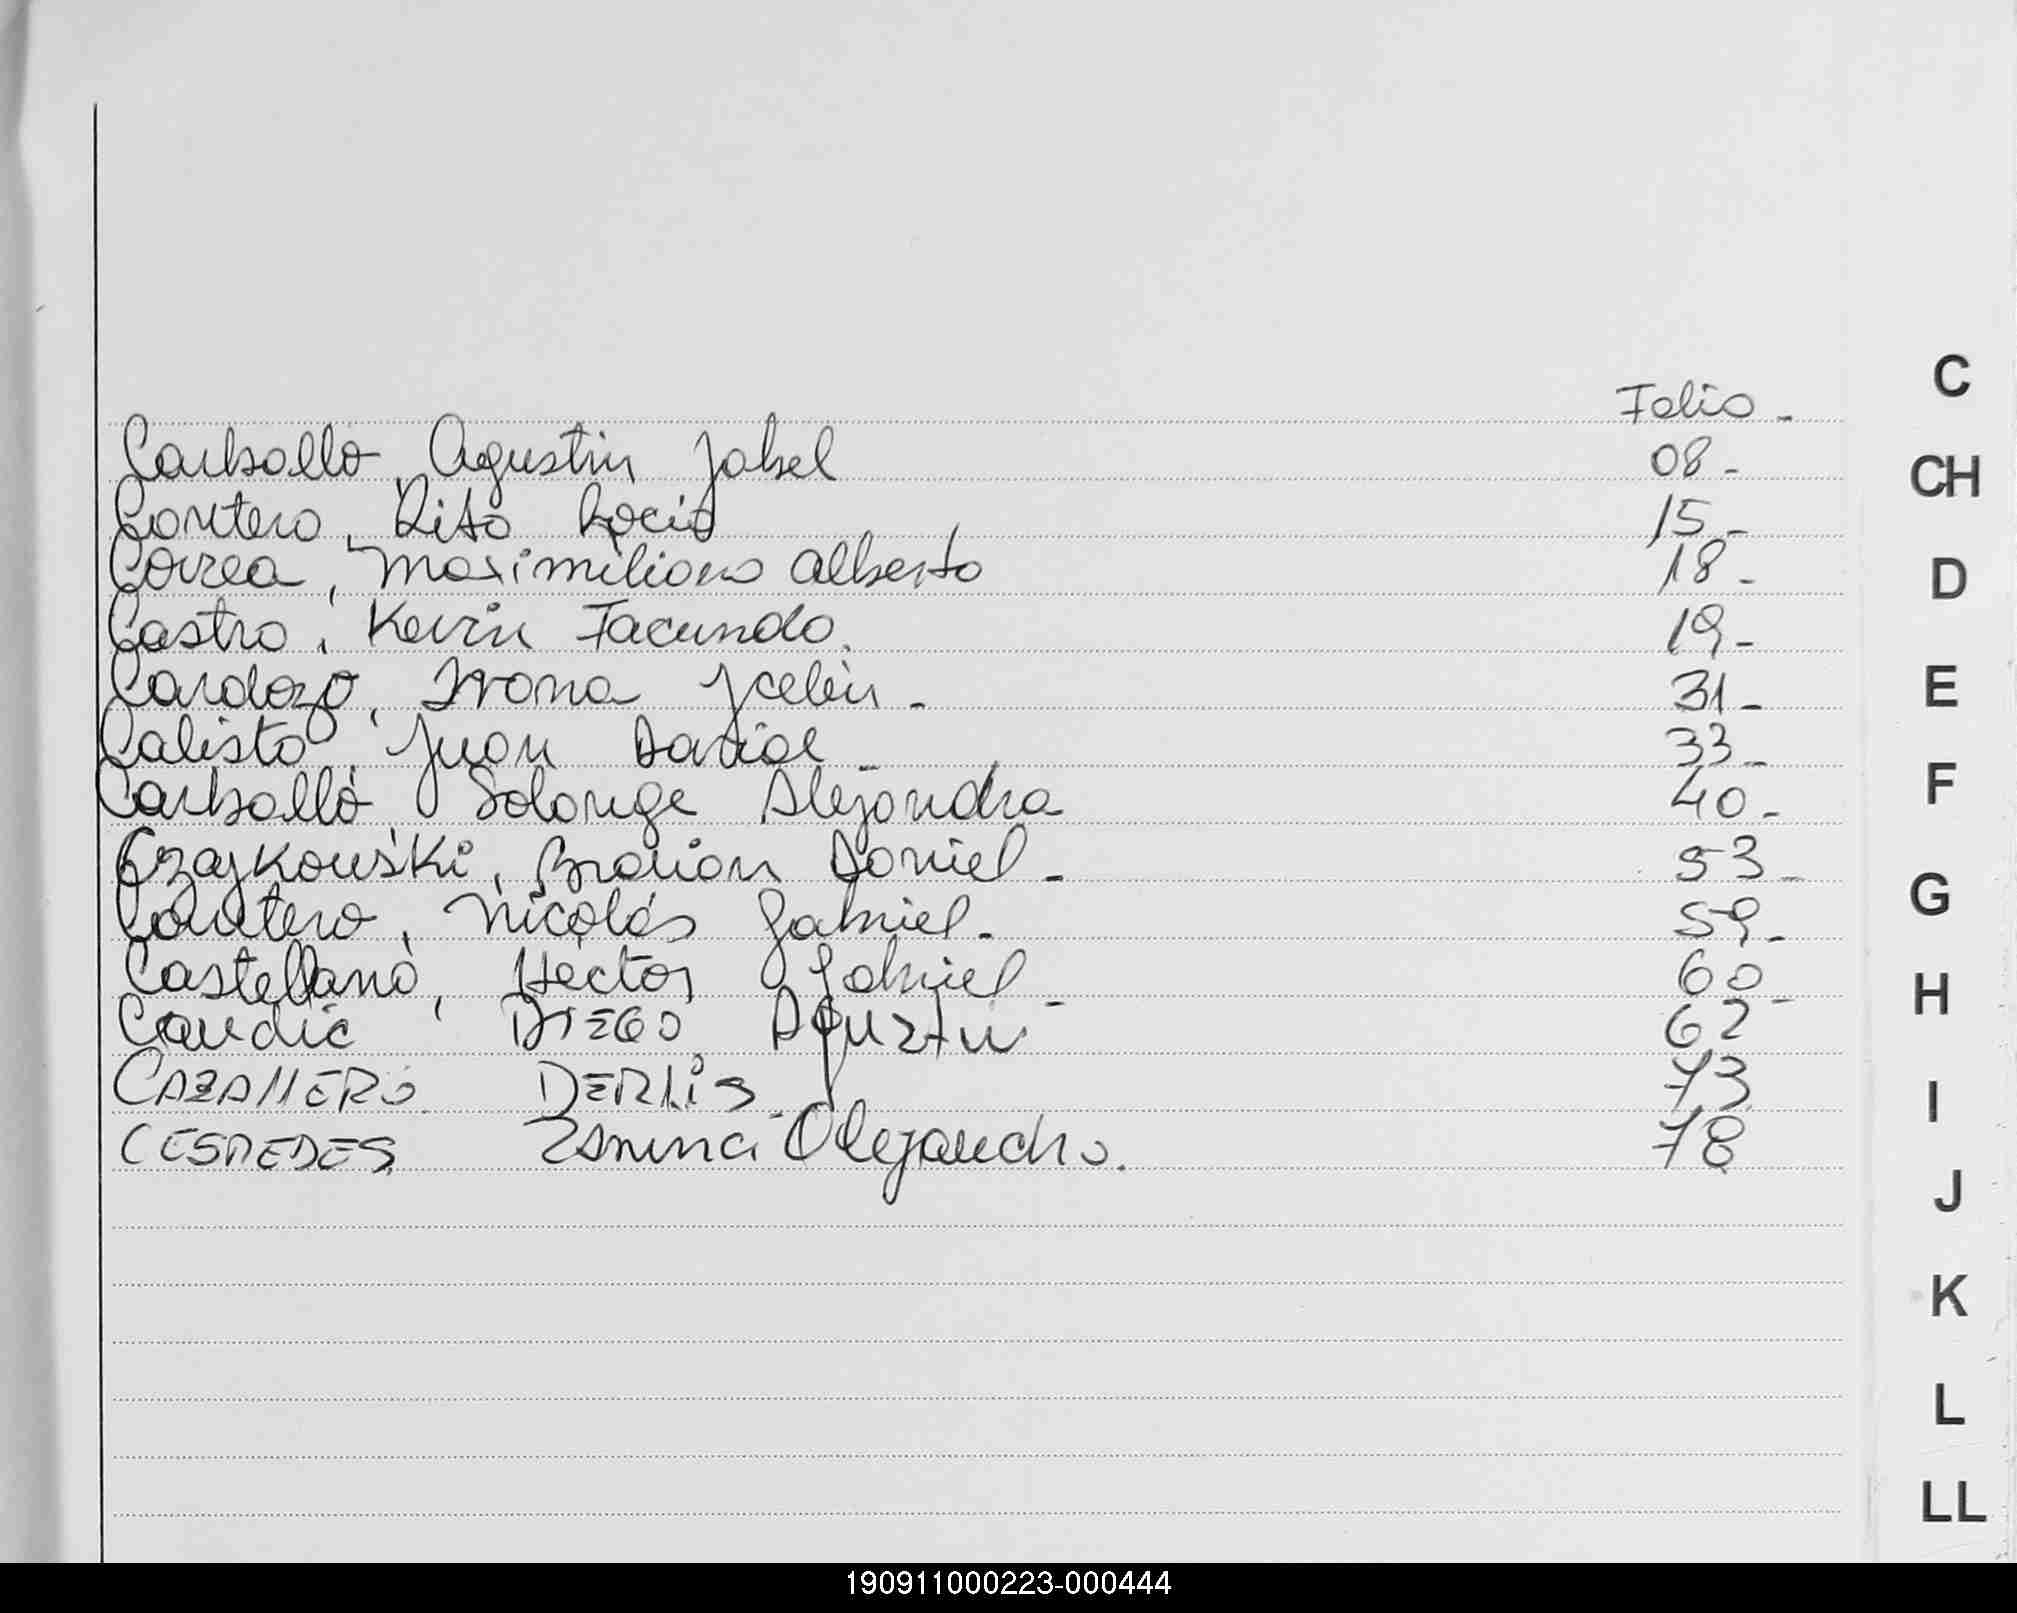 Folio -
Carballo, Agustin Jabel 08 -
Contero, Rita Rocio 15 -
Correa, Maximiliano Alberto 18 -
Castro, Kevin Facundo. 19 -
Cardozo, Ivana Jcelin - 31 -
Calisto, Juan Daniel - 33 -
Carballo, Solange Alejandra 40 -
Czajkouski, Braian Daniel - 53 -
Contero, Nicolás Gabriel - 59 -
Castellano, Hector Gabriel - 60 -
Caudic DIEGO Agustin 62
DERLis - 73
CESPEDES Alejandro. 78
C
CH
D
E
F
G
H
I
J
K
L
LL
190911000223-000444